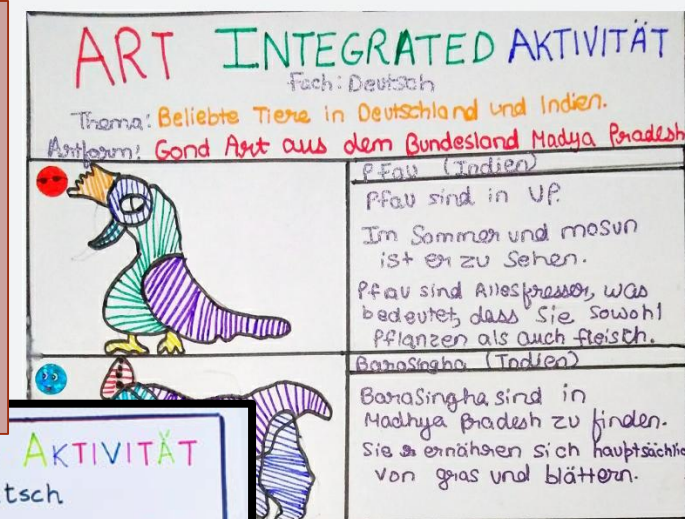 ART INTEGRATED AKTIVITÄT
Fach: Deutsch
Thema: Beliebte Tiere in Deutschland und Indien.
Artform: Gond Art aus dem Bundesland Madya Pradesh
Pfau (Indien)
Pfau sind in UP.
Im Sommer und mosun
ist er zu sehen.
Pfau sind Allesfresser, was
bedeutet, dass Sie sowohl
Pflanzen als auch fleisch.
BaraSingha (Indien)
BaraSingha sind in
Madhya Pradesh zu finden.
Sie ernähren sich hauptsächlic
von gras und blättern.
AKTIVITÄT
tsch